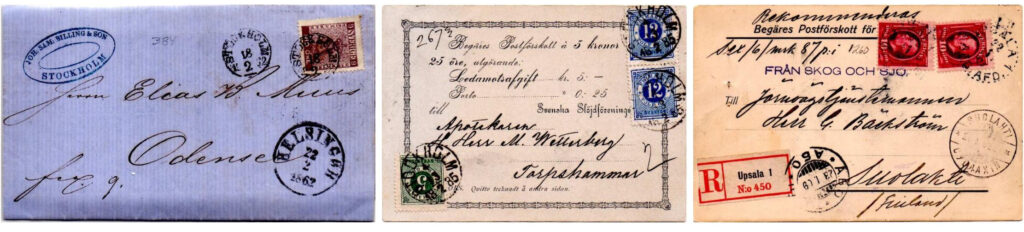 JOH. SAM. BILLING & SON
STOCKHOLM
384
STOCKHOLM
18
2
Herrn Elias B. Muus
Odense
frx q.
HELSINGÖR
22
2
1862
267 2
Begäres Postförskott à 5 kronor
25 öre, utgörande:
Ledamotsafgift kr. 5:-
Porto „ 0:25
till Svenska Slöjdförening
Apotekaren
Herr M. Wetterberg
Torpshammar
2
S. G. Quitto tecknadt å andra sidan.
12
12
5
STOCKHOLM
85
Rekommenderas
Begäres Postförskott för
Sex /6/ mrk 87 p:i
FRÅN SKOG OCH SJÖ.
Till
Jernvägstjänstemannen
Herr G. Bäckström
Suolaks
(Finland)
R
Upsala 1
N:o 450
ÅBO
10
10